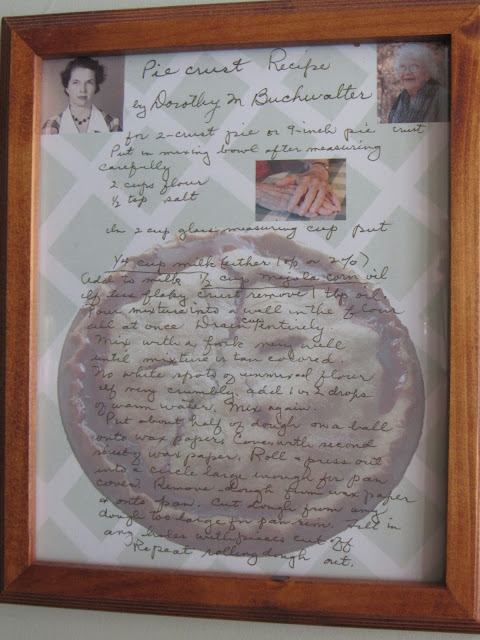 Pie crust Recipe
by Dorothy M Buchwalter
for 2-crust pie or 9-inch pie crust
Put in mixing bowl after measuring
carefully
2 cups flour
½ tsp salt
In 2 cup glass measuring cup put
¼ cup milk (either 1% or 2%)
Add to milk ½ cup mazola corn oil
If less flaky crust remove 1 tbp oil
Pour mixture into a well in the flour
all at once Drain cup entirely.
Mix with a fork very well
until mixture is tan colored.
No white spots of unmixed flour
If very crumbly, add 1 or 2 drops
of warm water. Mix again.
Put about half of dough on a ball
onto wax paper. Cover with second
sheet of wax paper. Roll & press out
into a circle large enough for pan
cover. Remove dough from wax paper
& onto pan. Cut dough from any
dough too large for pan rim. Fill in
any holes with pieces cut off
Repeat rolling dough out.